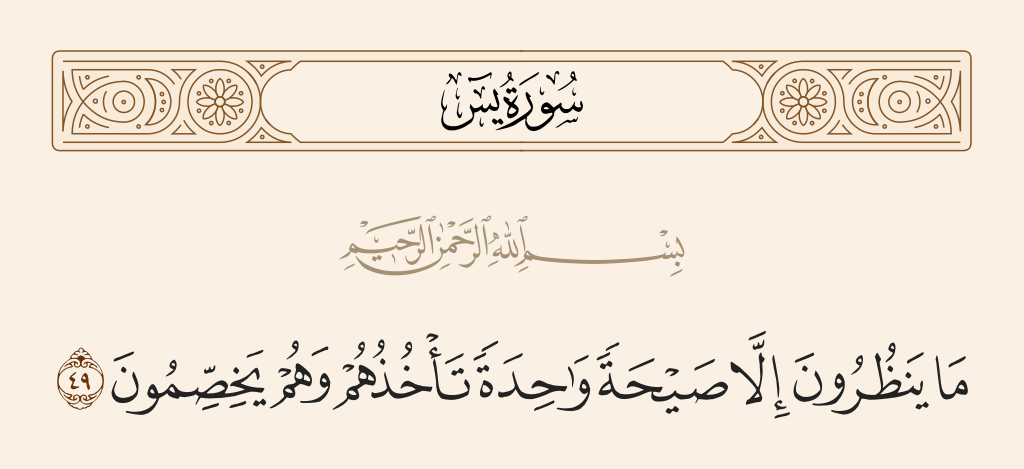 سُورَةُ يسٓ
بِسْمِ ٱللَّهِ ٱلرَّحْمَٰنِ ٱلرَّحِيمِ
مَا يَنظُرُونَ إِلَّا صَيْحَةً وَٰحِدَةً تَأْخُذُهُمْ وَهُمْ يَخِصِّمُونَ ٤٩